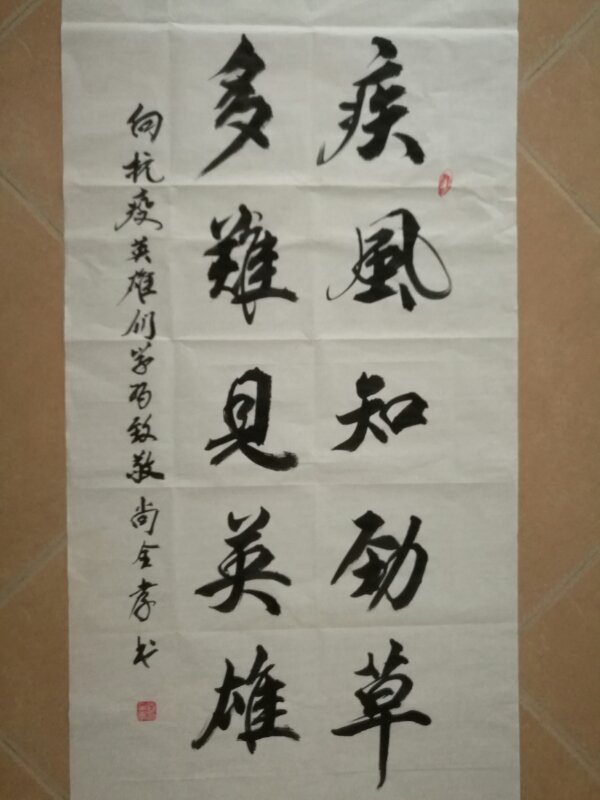 疾風知勁草
多難見英雄
向抗疫英雄们学习致敬尚全孝书